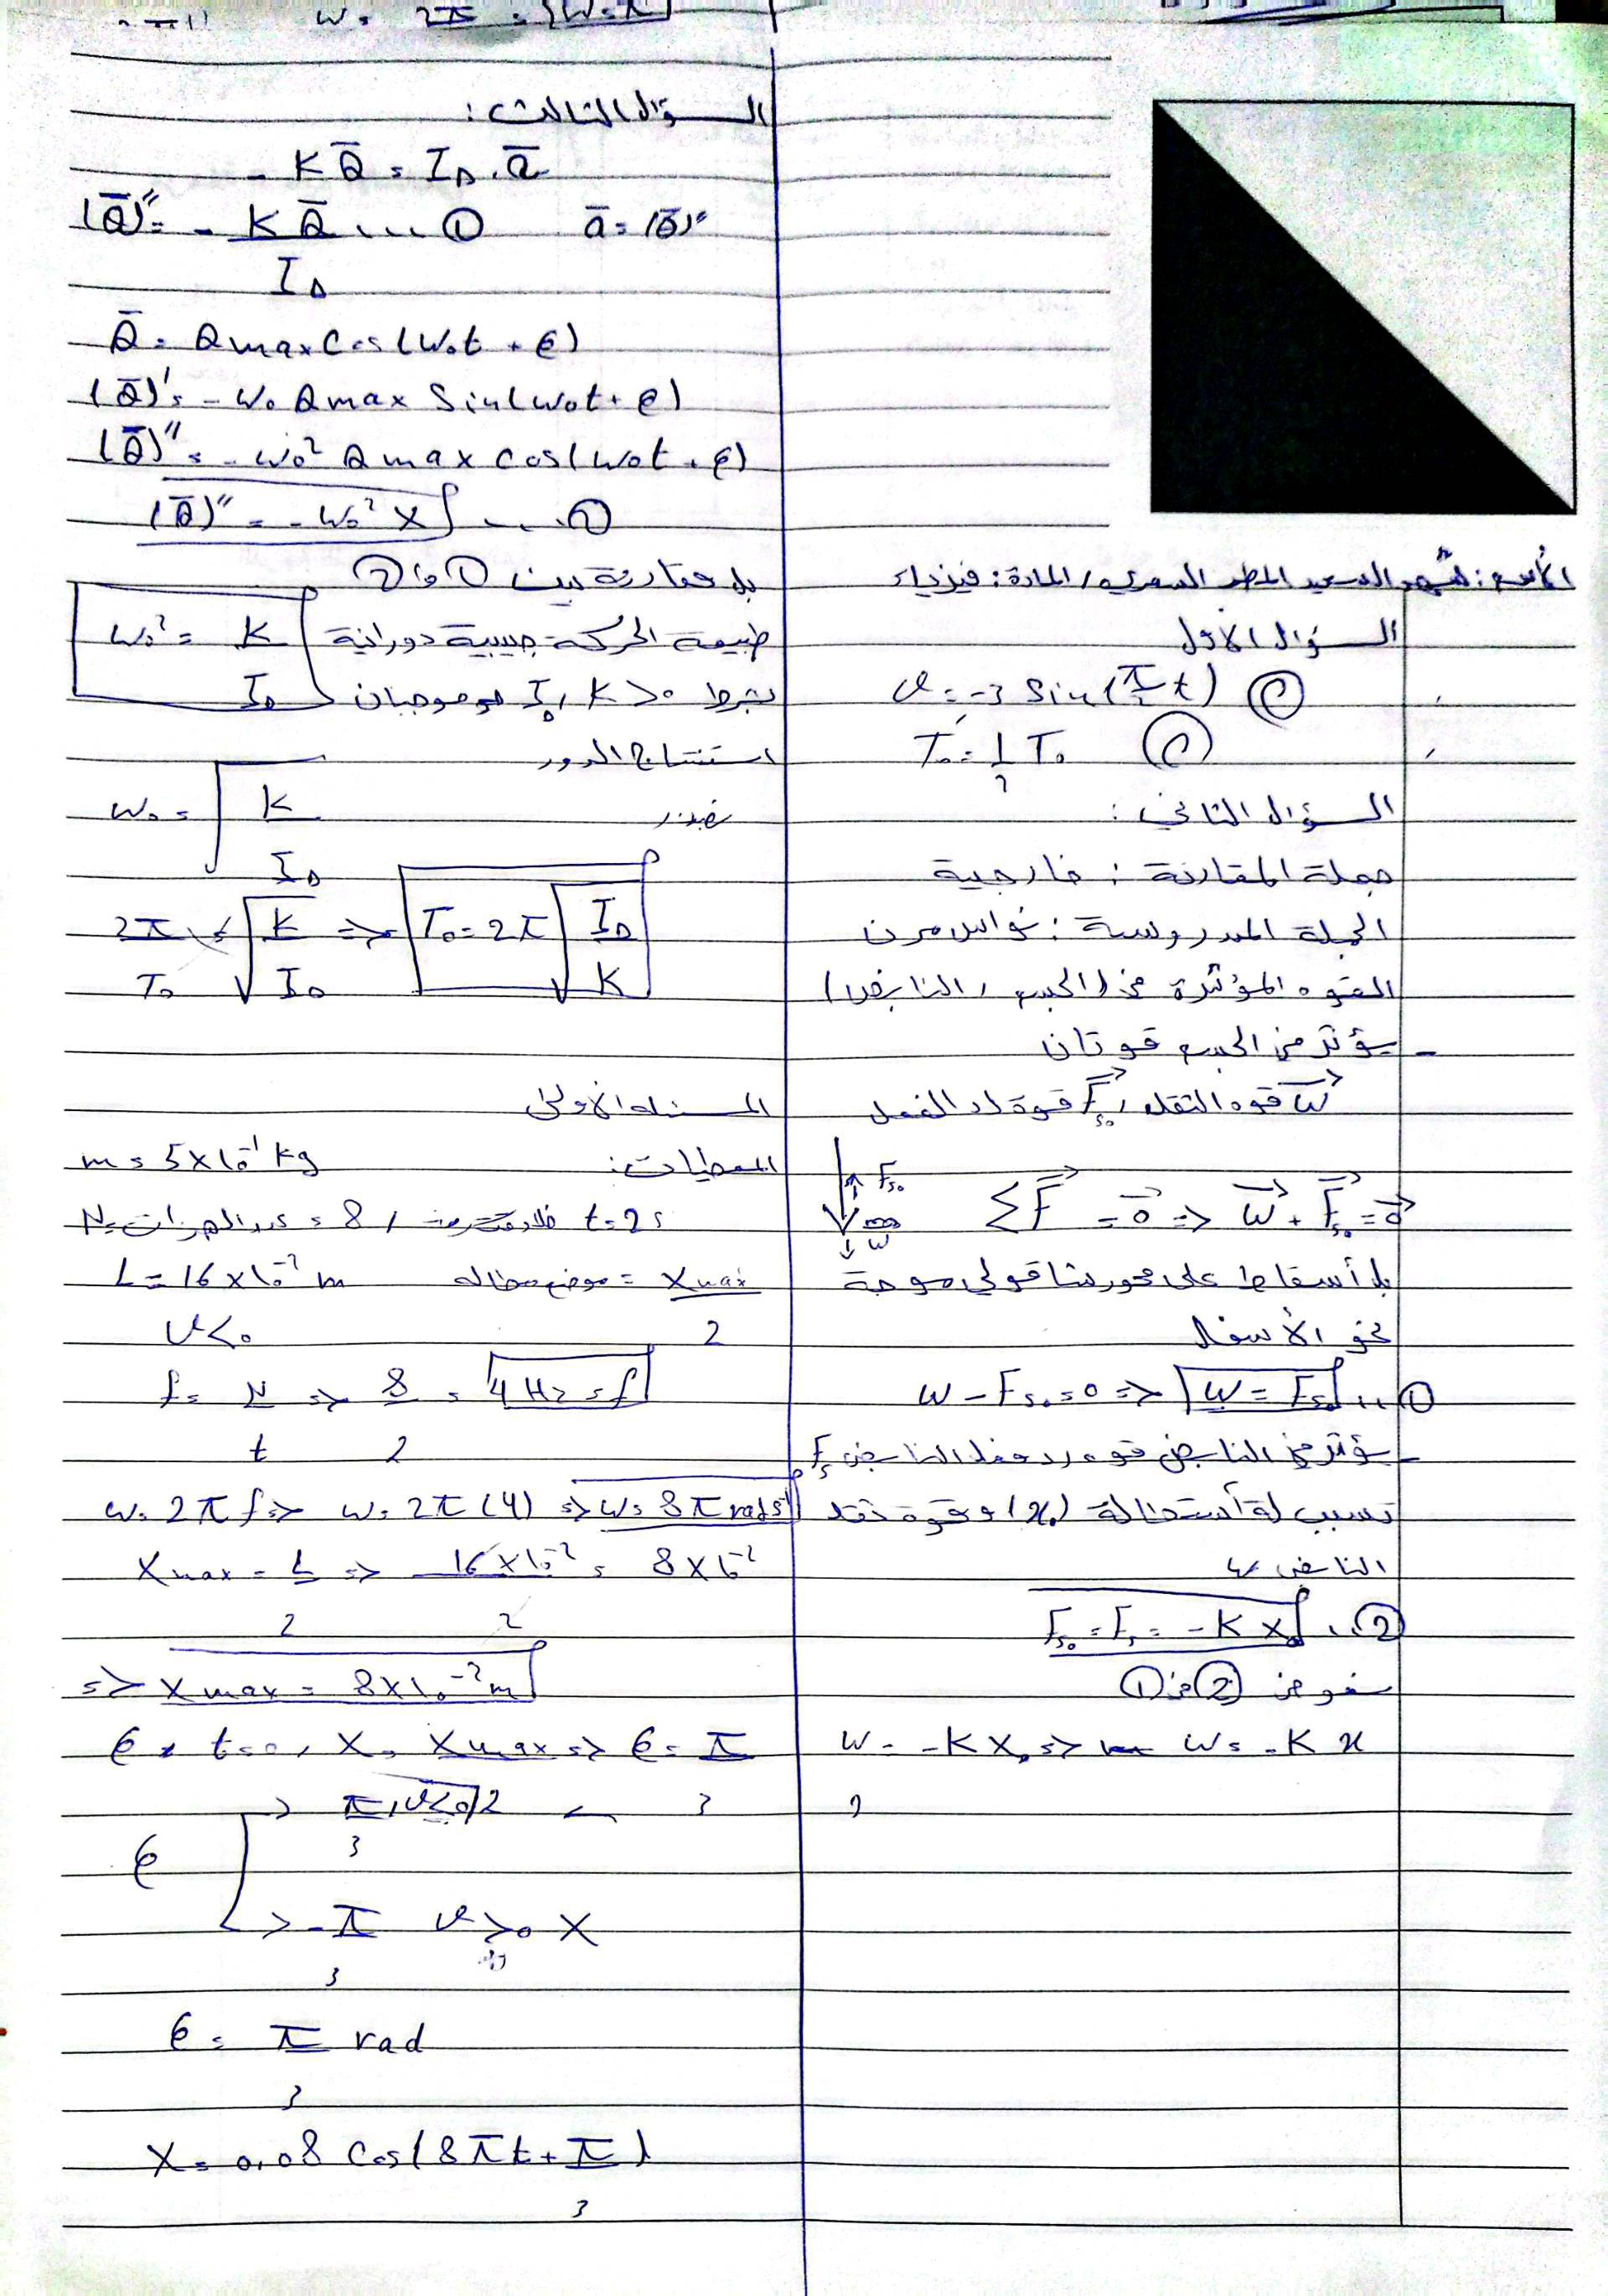 المادة: فيزياء
السؤال الاول
v = -3 Sin(π/2 t)
T₀ = 1/2 T₀
السؤال الثاني:
جملة المقارنة: خارجية
الجملة المدروسة: نواس مرن
القوه المؤثرة في (الجسم، النابض)
- يؤثر في الجسم قوتان
W قوه الثقل، Fs₀ قوة رد الفعل
Fs₀
W
ΣF = 0 => W + Fs₀ = 0
بلأسقاط على محور شاقولي موجة
نحو الأسفل
W - Fs₀ = 0 => W = Fs₀ ... ①
- يؤثر في النابض قوه رد فعل النابض Fs
تسبب لة أستطالة (x₀) و قوة ثقل
Fs₀ = Fs = -K x₀ ... ②
نعوض ② في ①
W = -K x₀ => W = -K x
السؤال الثالث:
- K θ̄ = I∆ . ᾱ
(θ̄)'' = - K θ̄ / I∆ ... ① ᾱ = (θ̄)''
θ̄ = θmax Cos(W₀t + φ)
(θ̄)' = -W₀ θmax Sin(W₀t + φ)
(θ̄)'' = -W₀² θmax Cos(W₀t + φ)
(θ̄)'' = -W₀² X ... ②
بل مقارنة بين ① و ②
طبيعة الحركة جيبية دورانية W₀² = K / I∆
بشرط K > 0 ، I∆ موجبان
استنتاج الدور
W₀ = √(K / I∆)
2π / T₀ = √(K / I∆) => T₀ = 2π √(I∆ / K)
المسئله الأولى
المعطيات: m = 5×10⁻¹ kg
t = 2s ، 8 = عدد الهزات N
X max / 2 = موضع مطاله L = 16×10⁻² m
v < 0
f = N / t => 8 / 2 = 4 Hz = f
W = 2π f => W = 2π (4) => W = 8π rad s⁻¹
X max = L / 2 => 16×10⁻² / 2 = 8×10⁻²
=> X max = 8×10⁻² m
φ t = 0, X = X max / 2 => φ = π / 3
φ
π / 3 , v < 0
-π / 3 v > 0 X
φ = π / 3 rad
X = 0.08 Cos(8πt + π / 3)